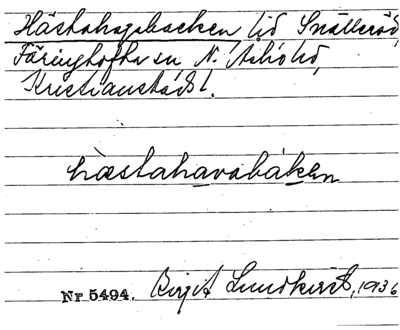 Hästahagsbacken vid Snälleröd,
Färingtofta sn N. Åsbo hd,
Kristianstads l.
hæstahavabáken
Nr 5494. Birgit Lundkvist, 1936